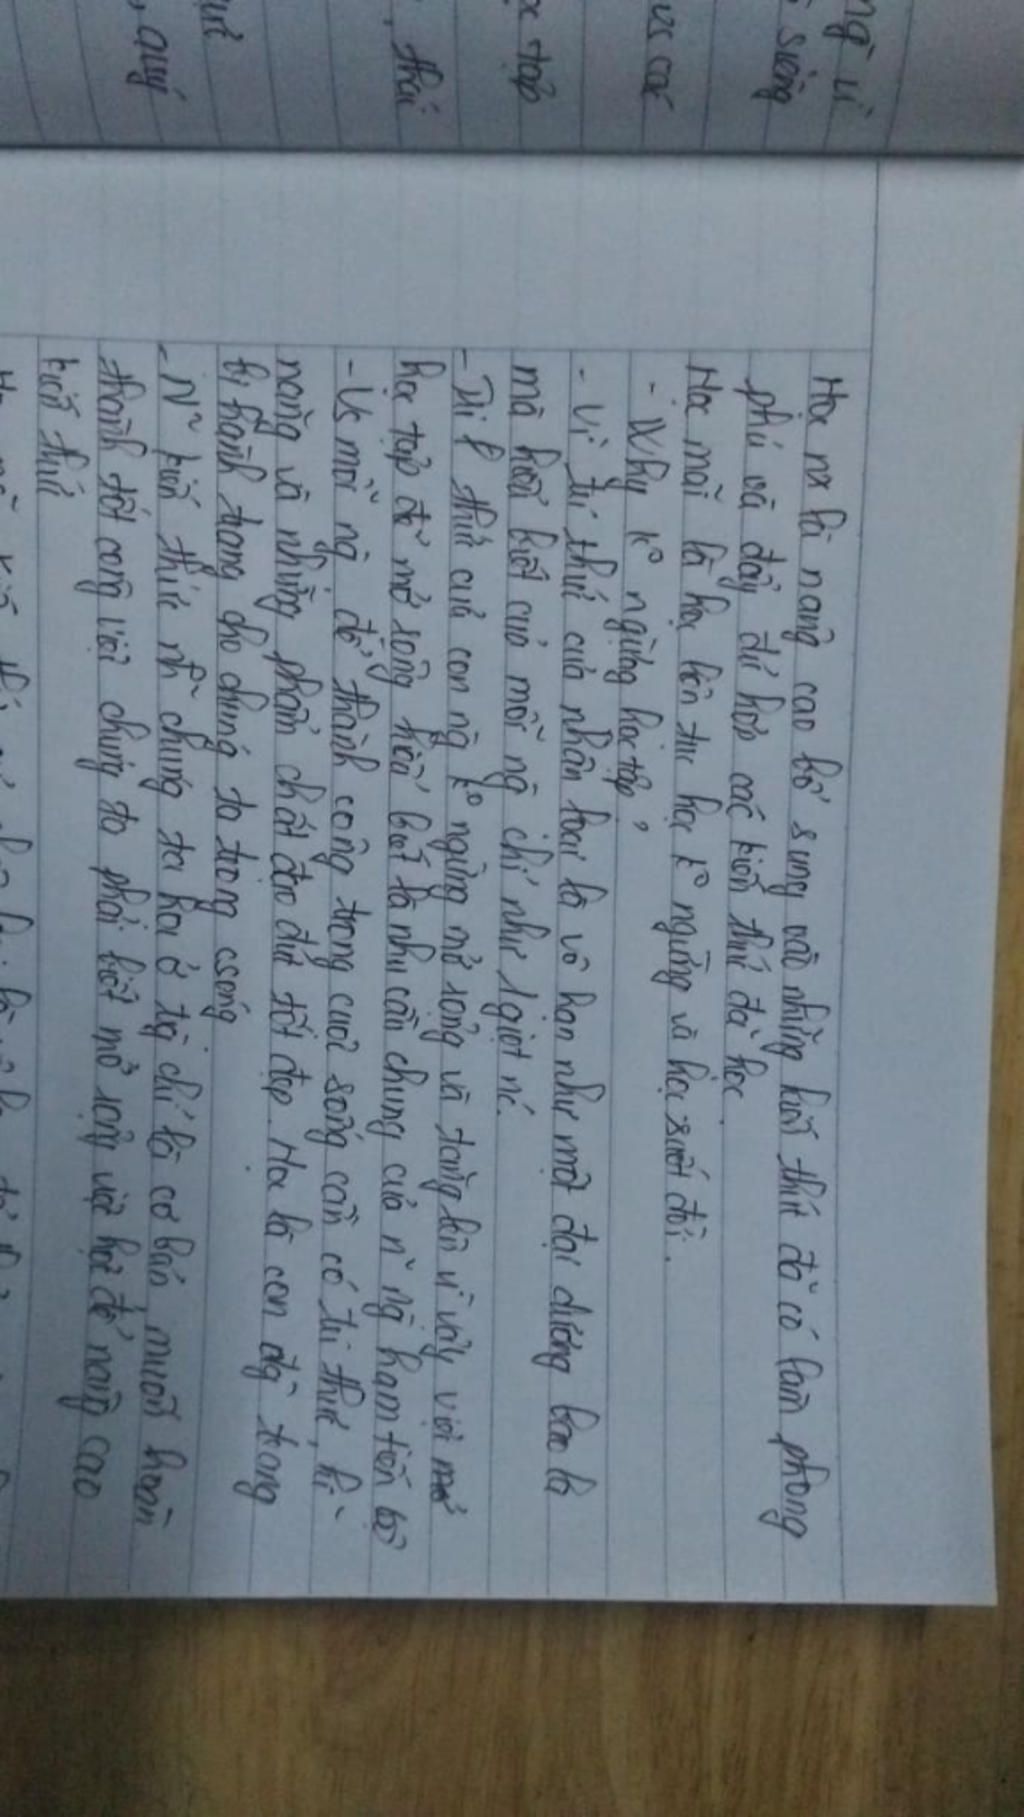 ng vì
sống
vs các
ọc tập
, thái
quý
Học nx là nâng cao bổ sung vào những kiến thức đã có làm phong
phú và đầy đủ hơn các kiến thức đã học.
Học mãi là học liên tục học k° ngừng và học suốt đời.
- Why k° ngừng học tập,
- Vì tri thức của nhân loại là vô hạn như một đại dương bao la
mà hiểu biết của mỗi ng chỉ như 1 giọt nc.
thức của con ng k° ngừng mở rộng và tăng lên vì vậy với
học tập để mở rộng hiểu biết là nhu cầu chung của n~ ng ham tiến bộ
- Vs mỗi ng để thành công trong cuộc sống cần có tri thức, kĩ
năng và những phẩm chất đạo đức tốt đẹp. Học là con đg trong
bị hành trang cho chúng ta trong csống
- N~ kiến thức chúng ta học ở tg chỉ là cơ bản, muốn hoàn
thành tốt công việc chúng ta phải biết mở rộng việc học để nâng cao
kiến thức